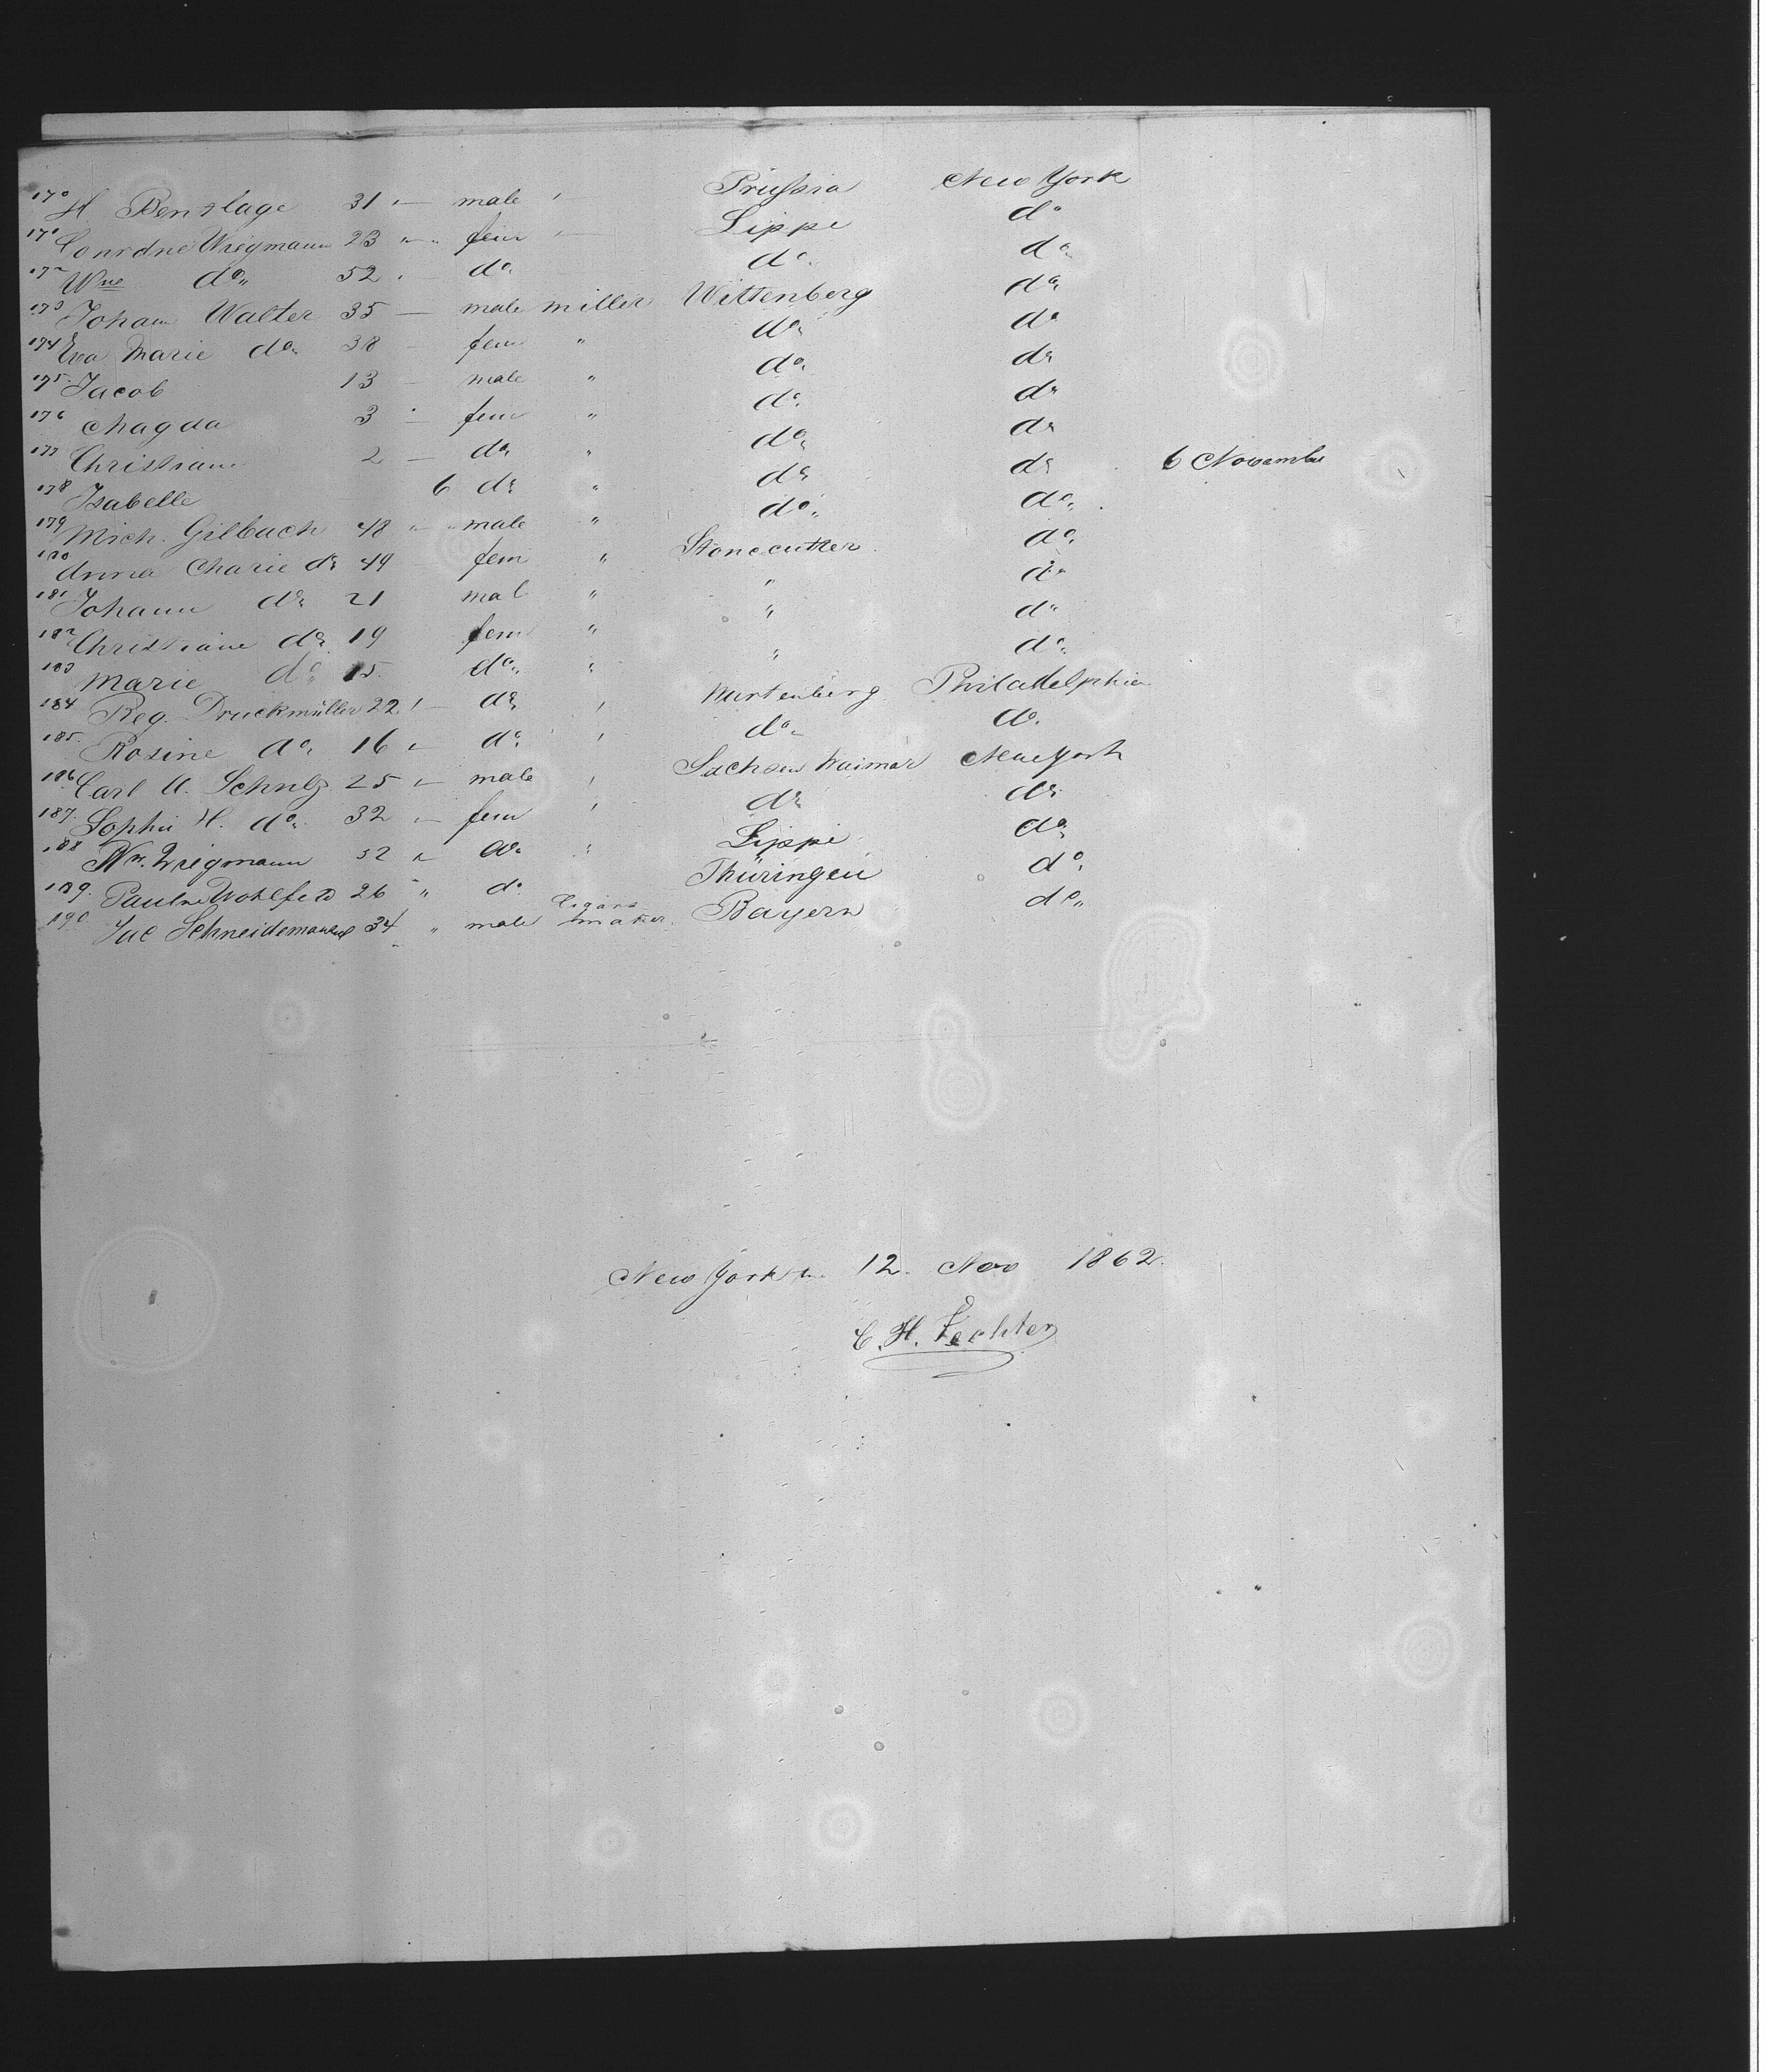 170 H. Benslage 31 " — male " Prussia New York
171 Conrdne Wiegmann 23 " " fem — Lippe do
172 Wne do 52 " — do do do
173 Johann Walter 35 — male miller Wittenberg do
174 Eva Marie do 38 — fem " do do
175 Jacob 13 — male " do do
176 Magda 3 — fem " do do
177 Christiane 2 — do " do do
178 Isabelle 6 do " do do 6 November
179 Mich. Gilbach 48 " male " do do
180 Anna Marie do 49 fem " Stonecutter do
181 Johann do 21 mal " " do
182 Christiane do 19 fem " " do
183 Marie do 15 do " " do
184 Reg. Druckmüller 22 " — do " Wurtenberg Philadelphia
185 Rosine do 16 " do " do do
186 Carl U. Schulz 25 " male " Sachsen Waimar New York
187 Sophie H. do 32 " fem " do do
188 Wm. Wiegmann 52 " do " Lippe do
189 Pauline Wohlfeld 26 " do Thüringen do
190 Jac Schneidemann 34 " male Cigars maker Bayern do
New York 12. Nov 1862.
C. H. Fechter